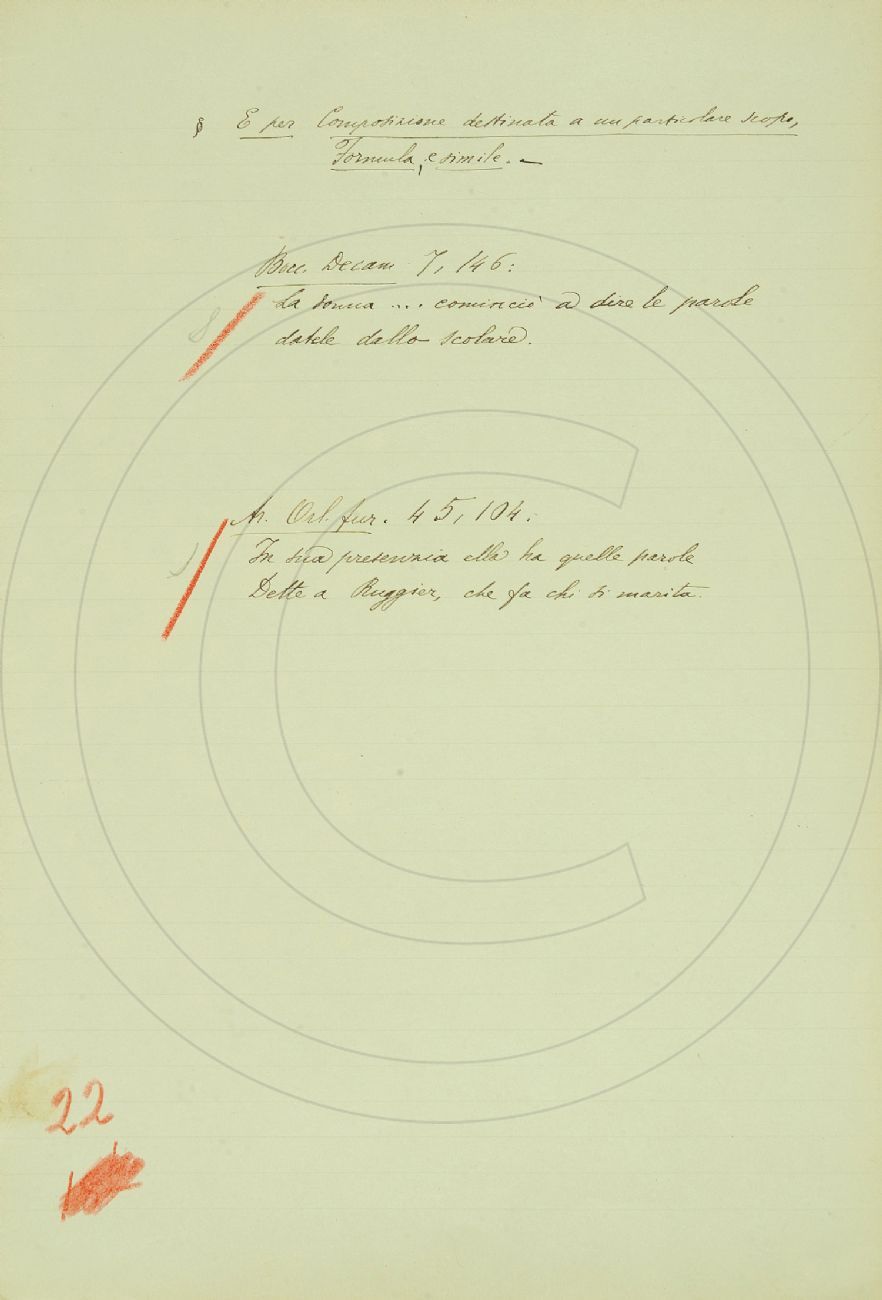 § E per Composizione destinata a un particolare scopo,
Formula, e simile. –
Bocc. Decam. 7, 146:
La donna ... cominciò a dire le parole
datele dallo scolare.
Ar. Orl. fur. 45, 104:
In sua presenzia ella ha quelle parole
Dette a Ruggier, che fa chi si marita.
22